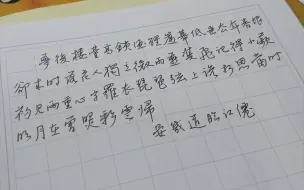 梦后楼台高锁酒醒帘幕低垂去年春恨
却来时落花人独立微雨燕双飞记得小蘋
初见两重心字罗衣琵琶弦上说相思当时
明月在曾照彩云归
晏几道临江仙